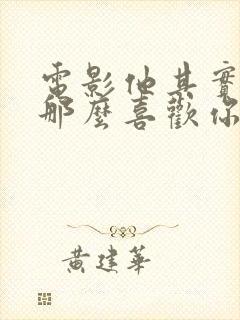 電影他其實
那麼喜歡你
黃建華